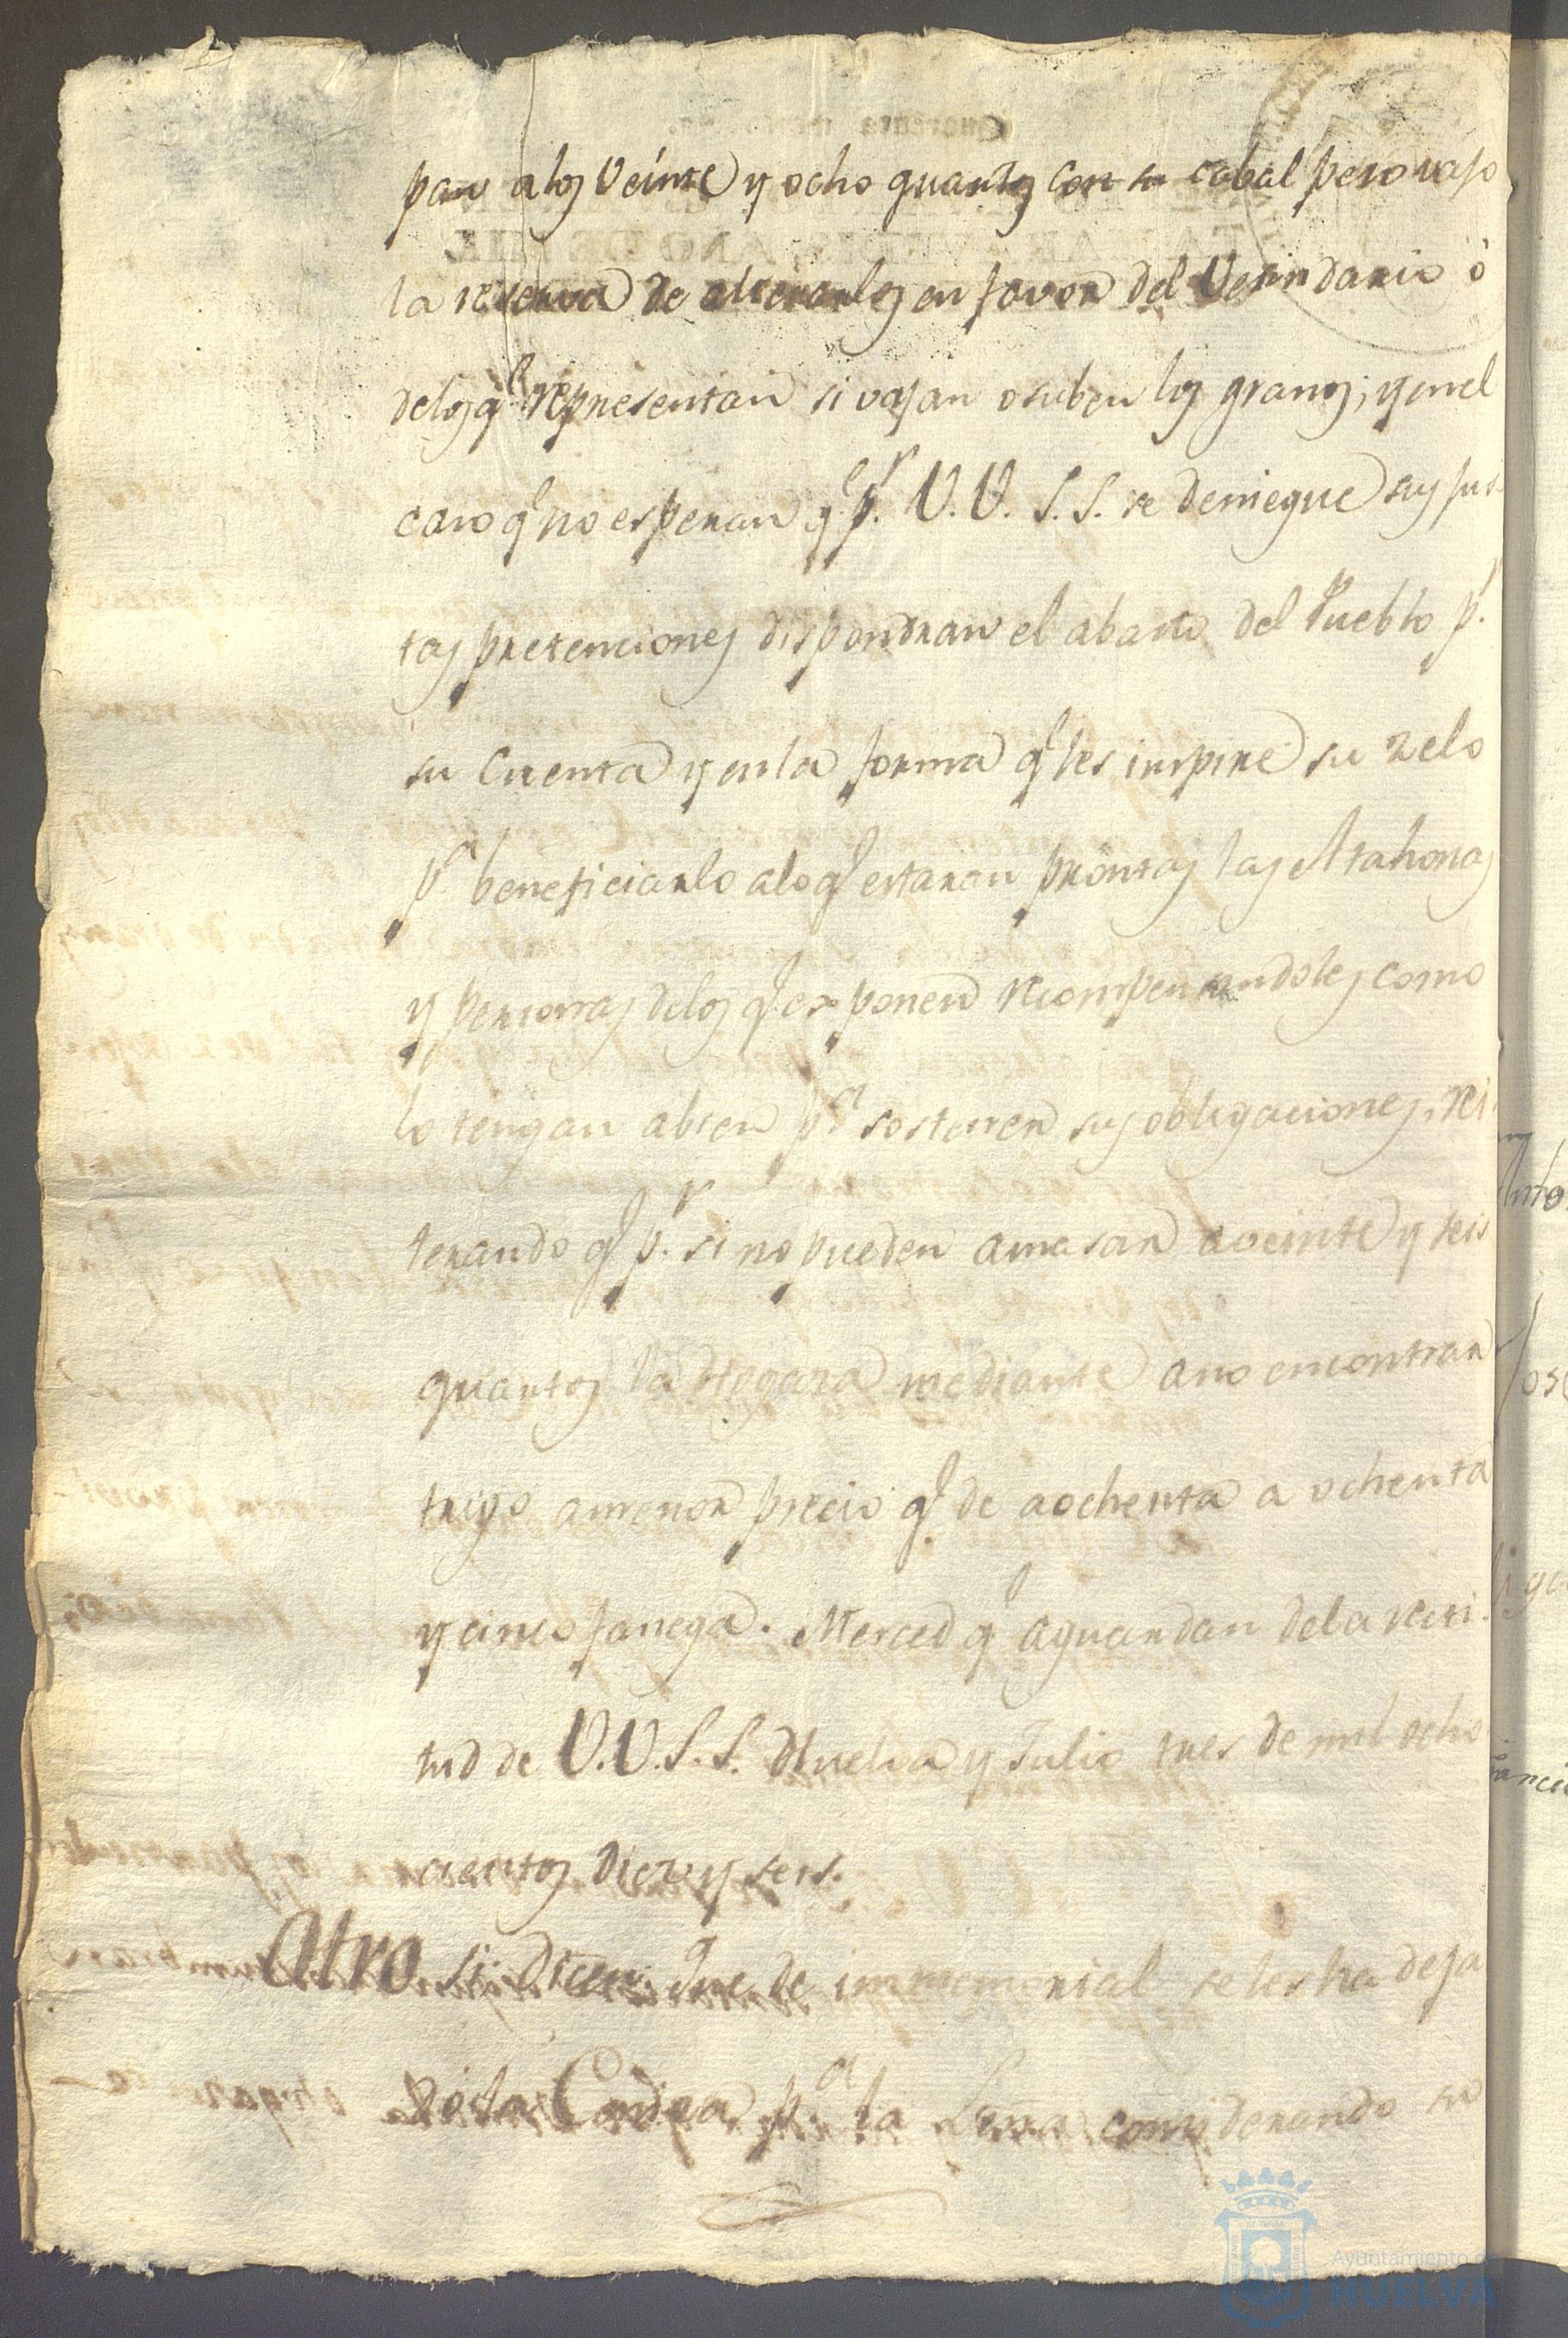 pan a los Veinte y ocho quartos con su cabal peso vajo
la reserva de alterarlos en favor del Vecindario ó
de los q.e representan si vajan o suben los granos; y en el
caso q.e no esperan q.e p.r V.V. S.S. se deniegue sus jus
tas pretenciones dispondran el abasto del Pueblo p.r
su cuenta y en la forma q.e les inspire su zelo
p.a beneficiarlo a lo q.e estaran prontas las Atahonas
y personas de los q.e exponen recompensandoles como
lo tengan abien p.a sostener sus obligaciones, rei
terando q.e p.r si no pueden amasar a veinte y seis
quartos la Hogaza mediante a no encontrar
trigo a menor precio q.e de a ochenta a ochenta
y cinco fanega. Merced q.e aguardan de la recti
tud de V.V.S.S. Huelva y Julio tres de mil ocho
cientos diez y seis.
Otro si dicen: Que de immemorial se les ha deja
do la p.a la considerando su
Ayuntamiento de
HUELVA